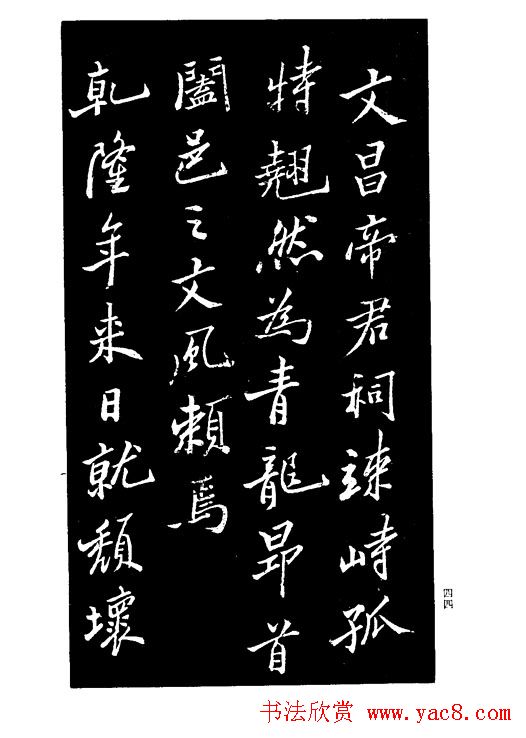 文昌帝君祠竦峙孤
特翹然為青龍昂首
闔邑之文風頼焉
乾隆年来日就頽壞
四四
书法欣赏 www.yac8.com